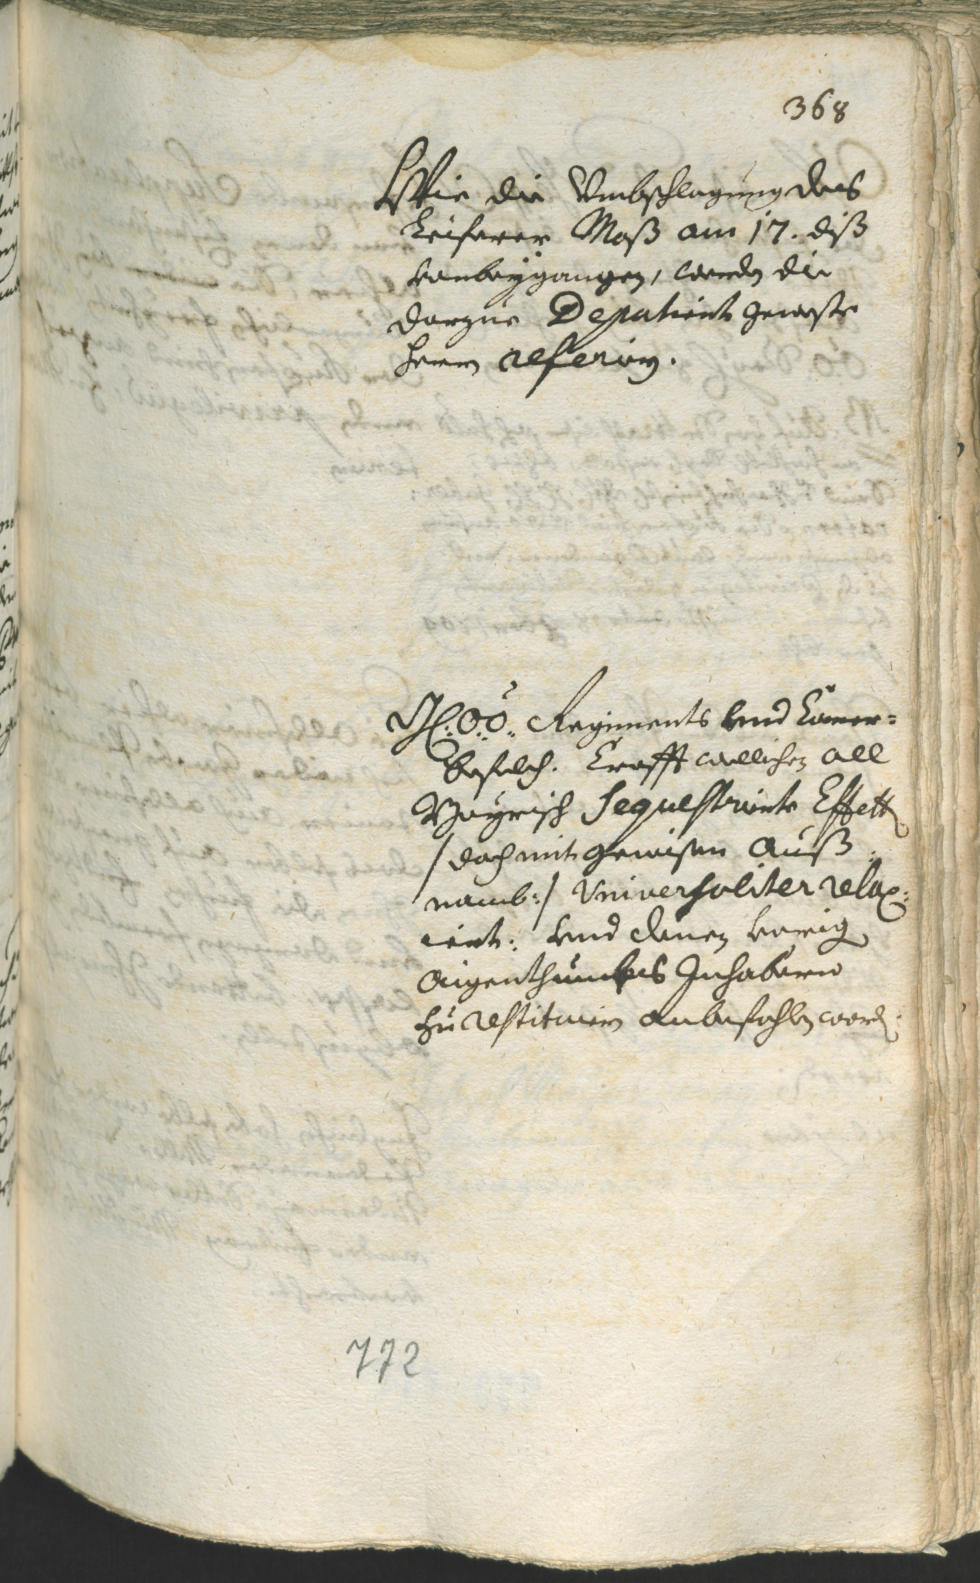 368
Wie die Umbschlagung des
Leiferer Moß am 17. diß
vorbeygangen, werden die
darzue Deputiert geweste
herrn referirn.
O: Ö: Regiments und Camer-
befelch. Crafft wellichen all
Bayrisch Sequestrierte Effett
/doch mit gewisen Auß
namb:/ Universaliter relax-
iert: und denen vorig
aigenthumbs Inhabern
zu restituiern anbefohlen word
772